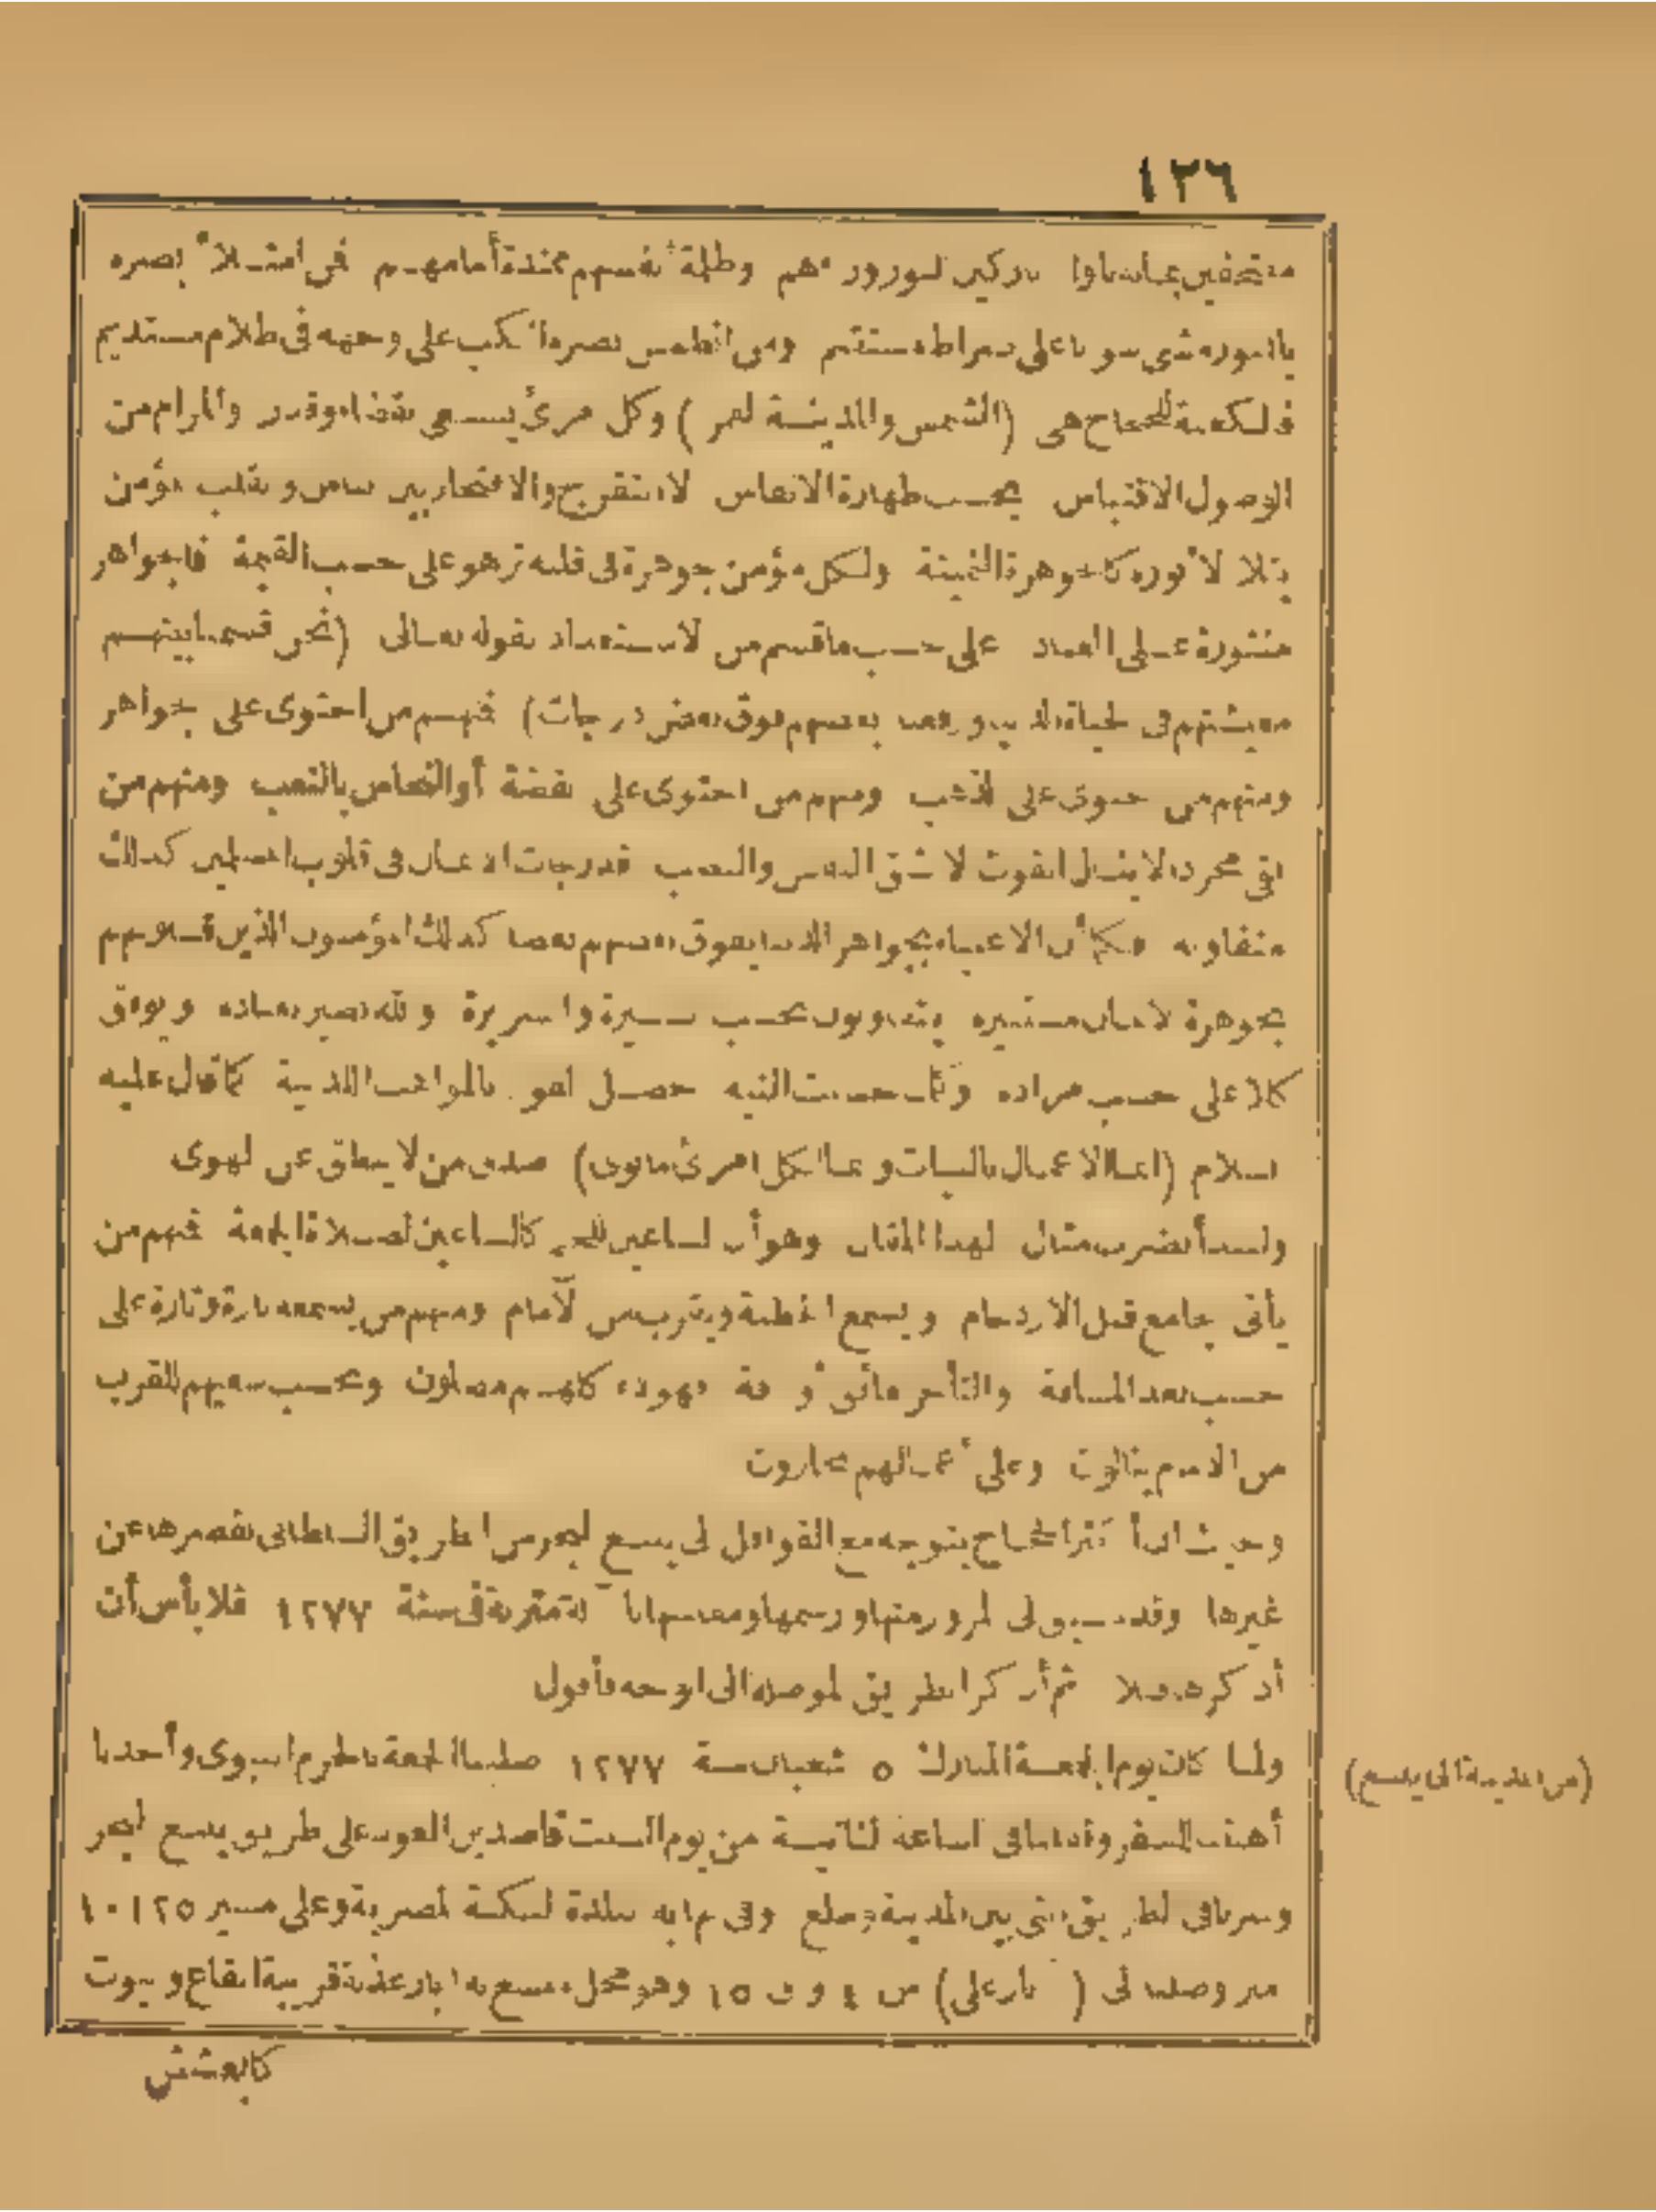 ١٢٦
وراءهم وظلمة أنفسهم ممتدة أمامهم فمن امتلأ بصره
بالنور مشى سويا على صراط مستقيم ومن انطمس بصره انكب على وجهه فى ظلام مستديم
فالكعبة للحجاج هى (الشمس والمدينة القمر) وكل امرئ يسعى بقضاء وقدر والمرام من
الوصول الاقتباس بحسب طهارة الانفاس لا التفرج والافتخار بين الناس وبقلب مؤمن
يتلألأ نوره كالجوهرة الثمينة ولكل مؤمن جوهرة فى قلبه تزهو على حسب القيمة فالجواهر
منثورة على العباد على حسب ما قسم من الاستعداد بقوله تعالى (نحن قسمنا بينهم
معيشتهم فى الحياة الدنيا ورفعنا بعضهم فوق بعض درجات) فمنهم من احتوى على جواهر
ومنهم من احتوى على الذهب ومنهم من احتوى على الفضة أو النحاس بالتعب ومنهم من
بقى مجردا لا ينال القوت الا بشق النفس والنصب فدرجات الاعمال فى قلوب المصلين كذلك
متفاوتة فكما أن الاغنياء بجواهر الدنيا يفوق بعضهم بعضا كذلك المؤمنون الذين قلوبهم
بجوهرة الايمان مستنيره يتفاوتون بحسب السيرة والسريرة والله بصير بعباده ويوفق
كلا على حسب مراده وكلما حسنت النية حصل الفوز بالمواهب اللدنية كما قال عليه
السلام (انما الاعمال بالنيات وانما لكل امرئ ما نوى) صدق من لا ينطق عن الهوى
ولنبدأ نضرب مثالا لهذا المقال وهو أن الساعين للحج كالساعين لصلاة الجمعة فمنهم من
يأتى الجامع قبل الازدحام ويسمع الخطبة ويقرب من الامام ومنهم من يسمعه تارة وتارة على
حسب بعد المسافة والتأخر كلهم مصلون وبحسب سعيهم للقرب
من الامام ينالون وعلى أعمالهم يجازون
وحيث ان أكثر الحجاج يتوجه مع القوافل الى ينبع البحر من الطريق السلطانى لقصرها عن
غيرها وقد سبق لى المرور منها ورسمها ومقاسها بالدقة مقربة فى سنة ١٢٧٧ فلا بأس أن
أذكرها أولا ثم أذكر الطريق الموصلة الى الوجه فأقول
ولما كان يوم الجمعة المبارك ٥ شعبان سنة ١٢٧٧ صلينا الجمعة بالحرم النبوى وأخذنا
أهبة السفر وقمنا فى الساعة الثانية من يوم السبت قاصدين العود على طريق ينبع البحر
(من المدينة الى ينبع)
وسرنا فى الطريق التى بين المدينة وسلع وفى نهايه بلدة السكة المصرية وعلى مسير ١٠١٢٥
متر وصلنا الى (ابار على) س ٤ و ق ١٥ وهو محل متسع به ابار عذبة قريبة القاع وبيوت
كالعشش